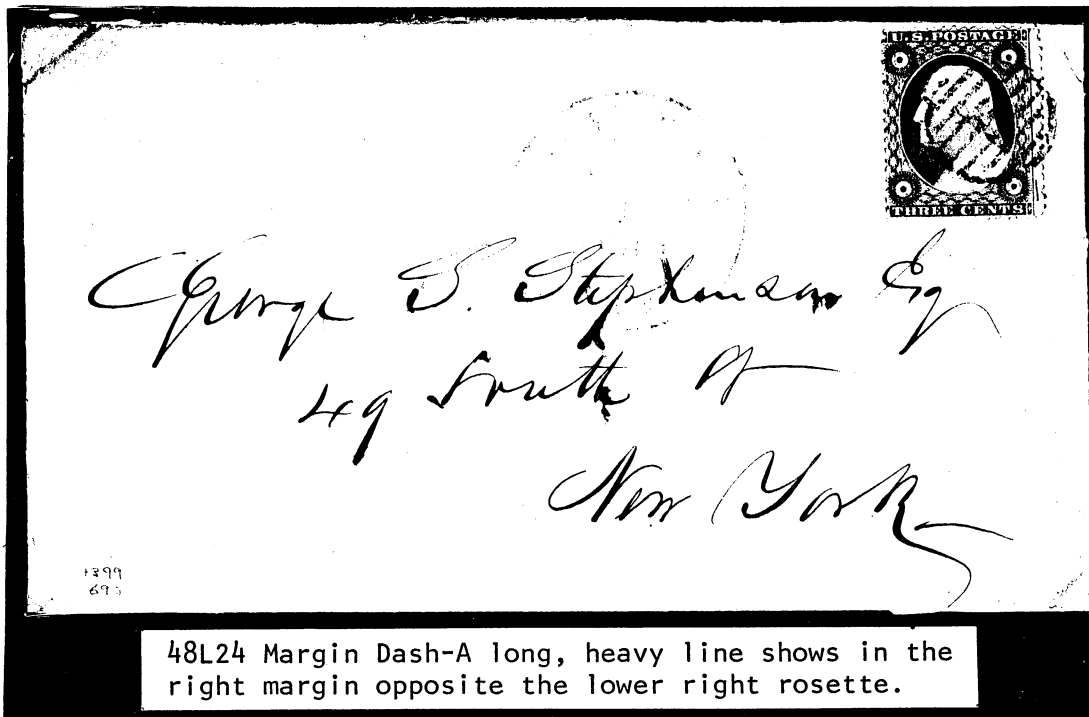 U.S. POSTAGE
THREE CENTS
George S. Stephenson Esq
49 South St
New York
1399
48L24 Margin Dash-A long, heavy line shows in the
right margin opposite the lower right rosette.